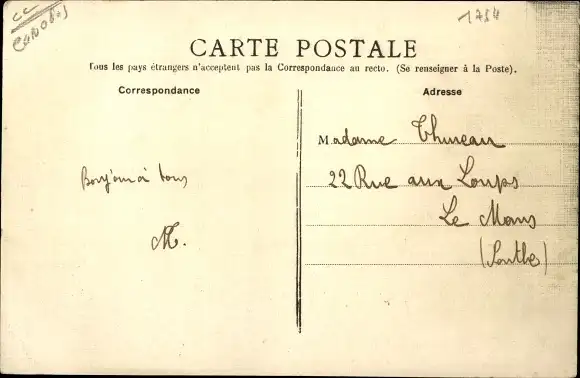 CC
1734
CARTE POSTALE
Tous les pays étrangers n'acceptent pas la Correspondance au recto. (Se renseigner à la Poste).
Correspondance
Adresse
Madame Thureau
22 Rue aux Loups
Le Mans
(Sarthe)
Bonjour à tous
M.